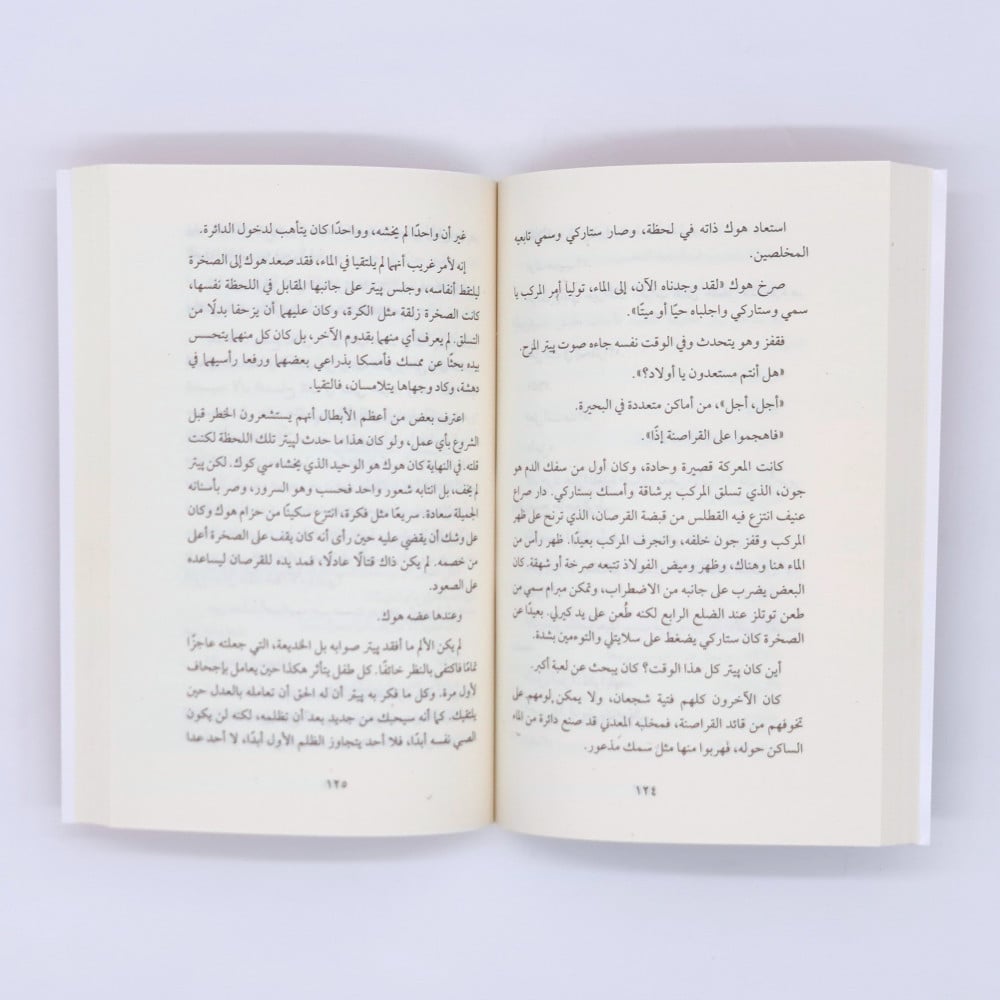 استعاد هوك ذاته في لحظة، وصار ستاركي وسمي تابعيه
المخلصين.
صرخ هوك «لقد وجدناه الآن، إلى الماء، توليا أمر المركب يا
سمي وستاركي واجلباه حيًا أو ميتًا».
فقفز وهو يتحدث وفي الوقت نفسه جاءه صوت پيتر المرح.
«هل أنتم مستعدون يا أولاد؟».
«أجل، أجل»، من أماكن متعددة في البحيرة.
«فاهجموا على القراصنة إذًا».
كانت المعركة قصيرة وحادة، وكان أول من سفك الدم هو
جون، الذي تسلق المركب برشاقة وأمسك بستاركي. دار صراع
عنيف انتزع فيه القطلس من قبضة القرصان، الذي ترنح على ظهر
المركب وقفز جون خلفه، وانجرف المركب بعيدًا. ظهر رأس من
الماء هنا وهناك، وظهر وميض الفولاذ تتبعه صرخة أو شهقة. كان
البعض يضرب على جانبه من الاضطراب، وتمكن مبرام سمي من
طعن توتلز عند الضلع الرابع لكنه طُعن على يد كيرلي. بعيدًا عن
الصخرة كان ستاركي يضغط على سلايتلي والتوءمين بشدة.
أين كان پيتر كل هذا الوقت؟ كان يبحث عن لعبة أكبر.
كان الآخرون كلهم فتية شجعان، ولا يمكن لومهم على
تخوفهم من قائد القراصنة، فمخلبه المعدني قد صنع دائرة من الماء
الساكن حوله، فهربوا منها مثل سمك مذعور.
١٢٤
غير أن واحدًا لم يخشه، وواحدًا كان يتأهب لدخول الدائرة.
إنه لأمر غريب أنهما لم يلتقيا في الماء، فقد صعد هوك إلى الصخرة
ليلتقط أنفاسه، وجلس پيتر على جانبها المقابل في اللحظة نفسها،
كانت الصخرة زلقة مثل الكرة، وكان عليهما أن يزحفا بدلًا من
التسلق. لم يعرف أي منهما بقدوم الآخر، بل كان كل منهما يتحسس
بيده بحثًا عن ممسك فأمسكا بذراعي بعضهما ورفعا رأسيهما في
دهشة، وكاد وجهاها يتلامسان، فالتقيا.
اعترف بعض من أعظم الأبطال أنهم يستشعرون الخطر قبل
الشروع بأي عمل، ولو كان هذا ما حدث لپيتر تلك اللحظة لكنت
قلته. في النهاية كان هوك هو الوحيد الذي يخشاه سي كوك. لكن پيتر
لم يخف، بل انتابه شعور واحد فحسب وهو السرور، وصر بأسنانه
الجميلة سعادة. سريعًا مثل فكرة، انتزع سكينًا من حزام هوك وكان
على وشك أن يقضي عليه حين رأى أنه كان يقف على الصخرة أعلى
من خصمه. لم يكن ذاك قتالًا عادلًا، فمد يده للقرصان ليساعده
على الصعود.
وعندها عضه هوك.
لم يكن الألم ما أفقد پيتر صوابه بل الخديعة، التي جعلته عاجزًا
تمامًا فاكتفى بالنظر خائفًا. كل طفل يتأثر هكذا حين يعامل بإجحاف
لأول مرة. وكل ما فكر به پيتر أن له الحق أن تعامله بالعدل حين
يلتقيك. كما أنه سيحبك من جديد بعد أن تظلمه، لكنه لن يكون
الصبي نفسه أبدًا، فلا أحد يتجاوز الظلم الأول أبدًا، لا أحد عدا
١٢٥